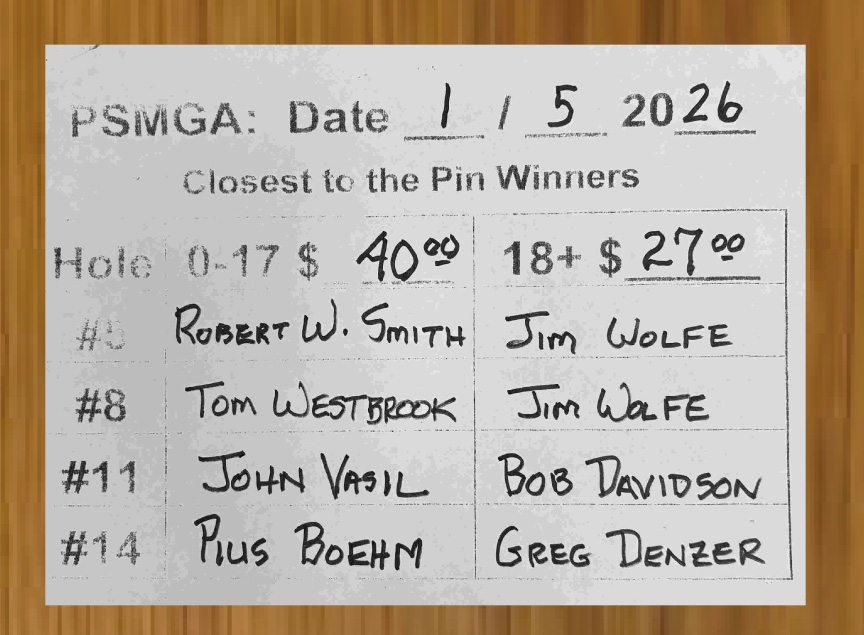 PSMGA: Date 1 / 5 2026
Closest to the Pin Winners
Hole 0-17 $ 40.00 18+ $ 27.00
#5 ROBERT W. SMITH JIM WOLFE
#8 TOM WESTBROOK JIM WOLFE
#11 JOHN VASIL BOB DAVIDSON
#14 PIUS BOEHM GREG DENZER